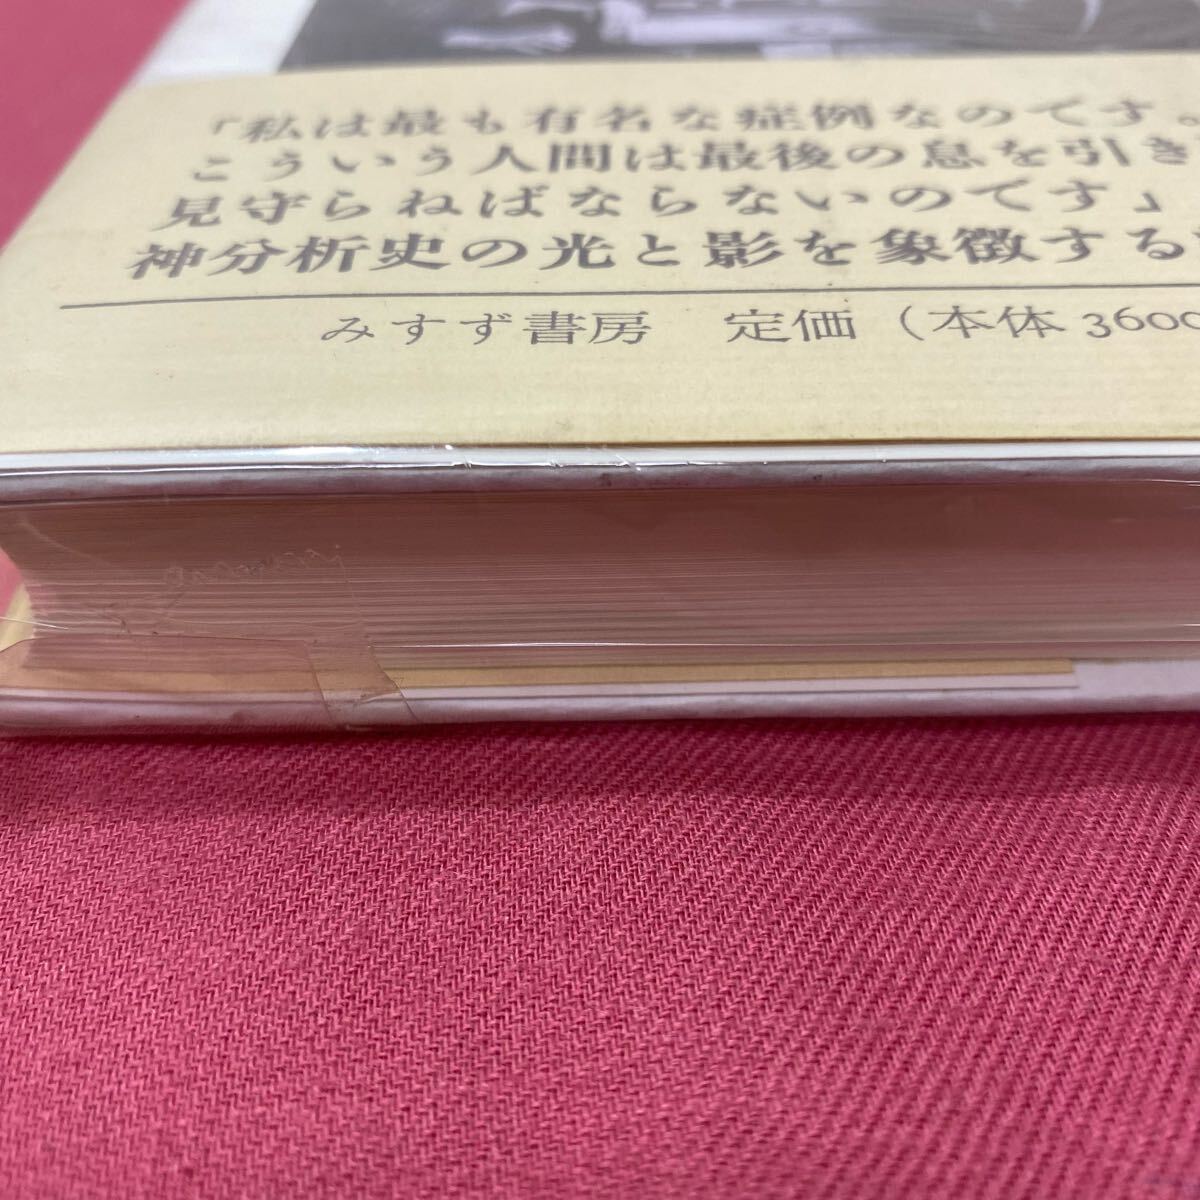 「私は最も有名な症例なのです。
こういう人間は最後の息を引き
見守らねばならないのです」
神分析史の光と影を象徴する
みすず書房 定価（本体3600